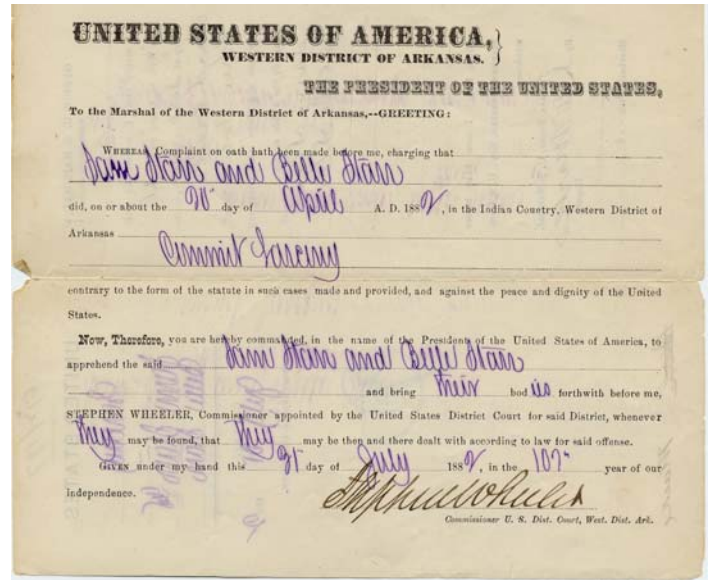 UNITED STATES OF AMERICA,
WESTERN DISTRICT OF ARKANSAS.
THE PRESIDENT OF THE UNITED STATES,
To the Marshal of the Western District of Arkansas,--GREETING:
WHEREAS, Complaint on oath hath been made before me, charging that
Sam Starr and Belle Starr
did, on or about the 20 day of April A. D. 1882, in the Indian Country, Western District of
Arkansas
Commit Larceny
contrary to the form of the statute in such cases made and provided, and against the peace and dignity of the United
States.
Now, Therefore, you are hereby commanded, in the name of the President of the United States of America, to
apprehend the said Sam Starr and Belle Starr
and bring their bodies forthwith before me,
STEPHEN WHEELER, Commissioner appointed by the United States District Court for said District, whenever
they may be found, that they may be then and there dealt with according to law for said offense.
GIVEN under my hand this 31 day of July 1882, in the 107th year of our
independence. Stephen Wheeler
Commissioner U. S. Dist. Court, West. Dist. Ark.